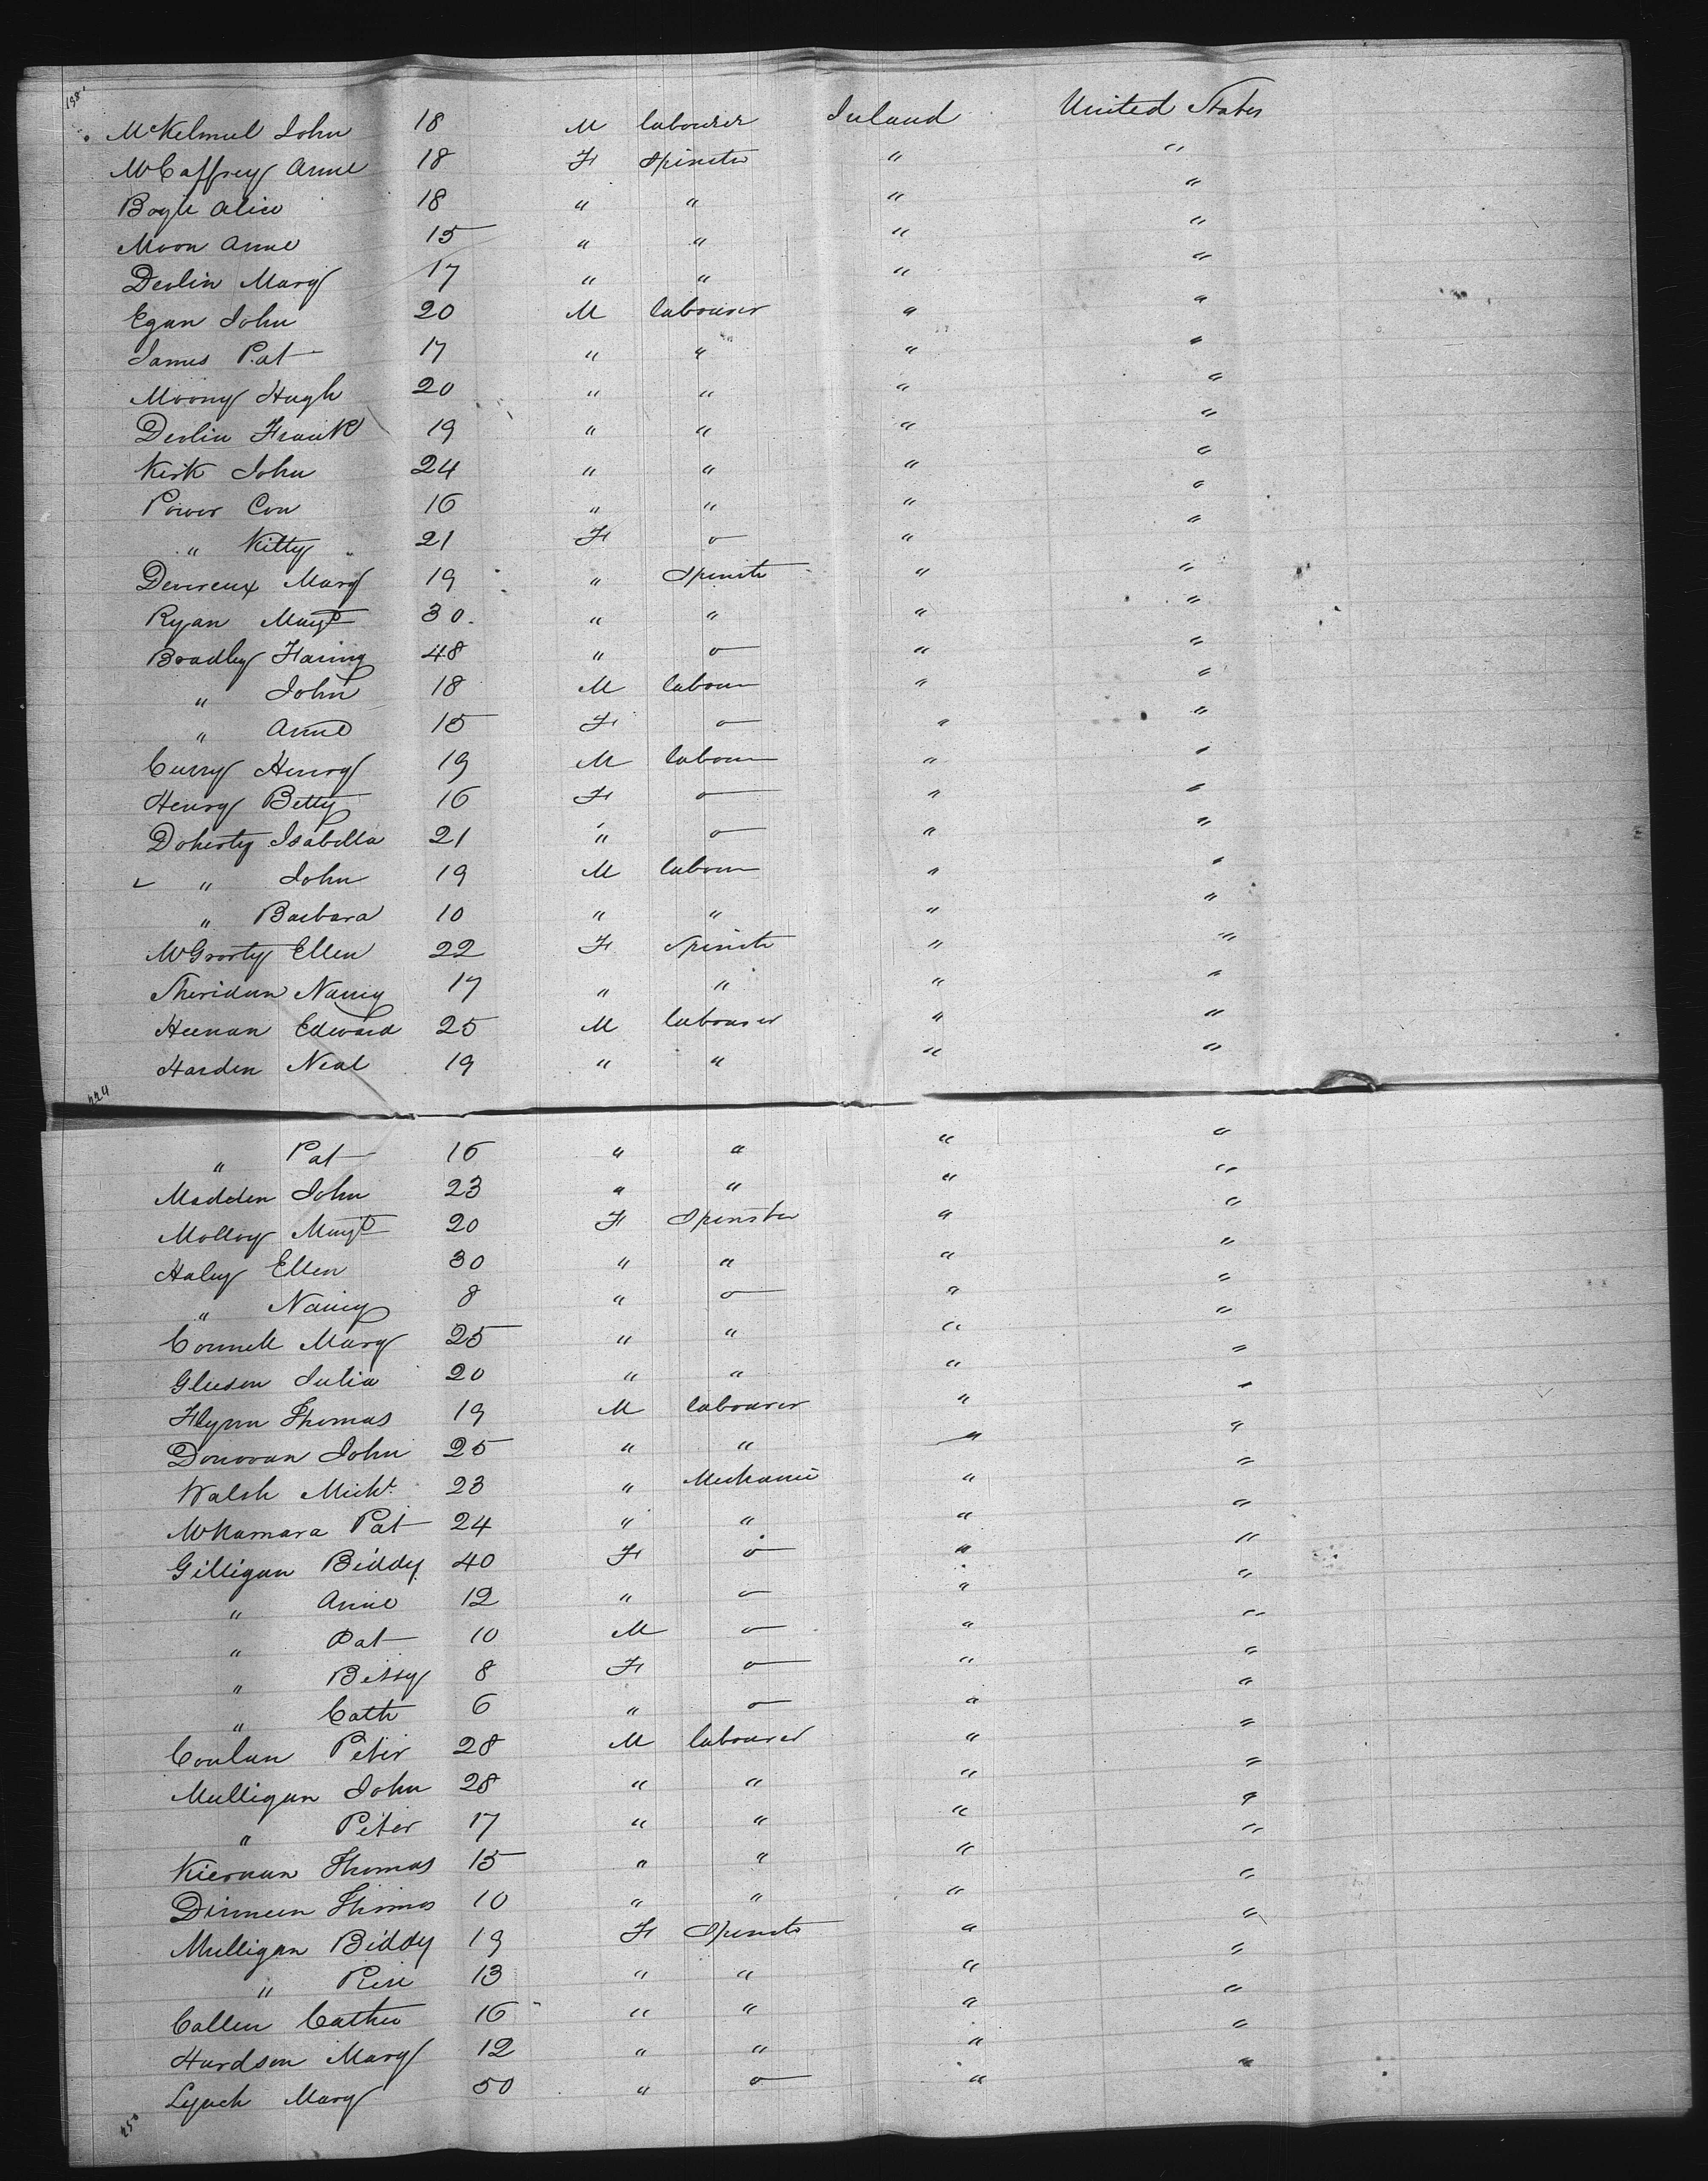 198
McKelmul John 18 M labourer Ireland United States
McCaffrey Anne 18 F Spinster " "
Boyle Alice 18 " " " "
Moon Anne 15 " " " "
Devlin Mary 17 " " " "
Egan John 20 M labourer " "
James Pat 17 " " " "
Moony Hugh 20 " " " "
Devlin Frank 19 " " " "
Kirk John 24 " " " "
Power Con 16 " " " "
" Kitty 21 F o " "
Devereux Mary 19 " Spinste " "
Ryan Margt 30 " " " "
Bradley Fanny 48 " o " "
" John 18 M labour " "
" Anne 15 F o " "
Curry Henry 19 M labour " "
Henry Betty 16 F o " "
Doherty Isabella 21 " o " "
" John 19 M labour " "
" Barbara 10 " " " "
McGrorty Ellen 22 F Spinste " "
Sheridan Nancy 17 " " " "
Heenan Edward 25 M labourer " "
Harden Neal 19 " " " "
224
" Pat 16 " " " "
Madden John 23 " " " "
Molloy Margt 20 F Spinster " "
Haley Ellen 30 " " " "
" Nancy 8 " o " "
Connell Mary 25 " " " "
Gleeson Julia 20 " " " "
Flynn Thomas 19 M labourer " "
Donovan John 25 " " " "
Walsh Michl 23 " Mechanic " "
McNamara Pat 24 " " " "
Gilligan Biddy 40 F o " "
" Anne 12 " o " "
" Pat 10 M o " "
" Bessy 8 F o " "
" Cath 6 " o " "
Conlan Peter 28 M labourer " "
Mulligan John 28 " " " "
" Peter 17 " " " "
Kiernan Thomas 15 " " " "
Dinneen Thomas 10 " " " "
Mulligan Biddy 19 F Spinste " "
" Rose 13 " " " "
Callen Cathe 16 " " " "
Hurdson Mary 12 " " " "
Lynch Mary 50 " o " "
250